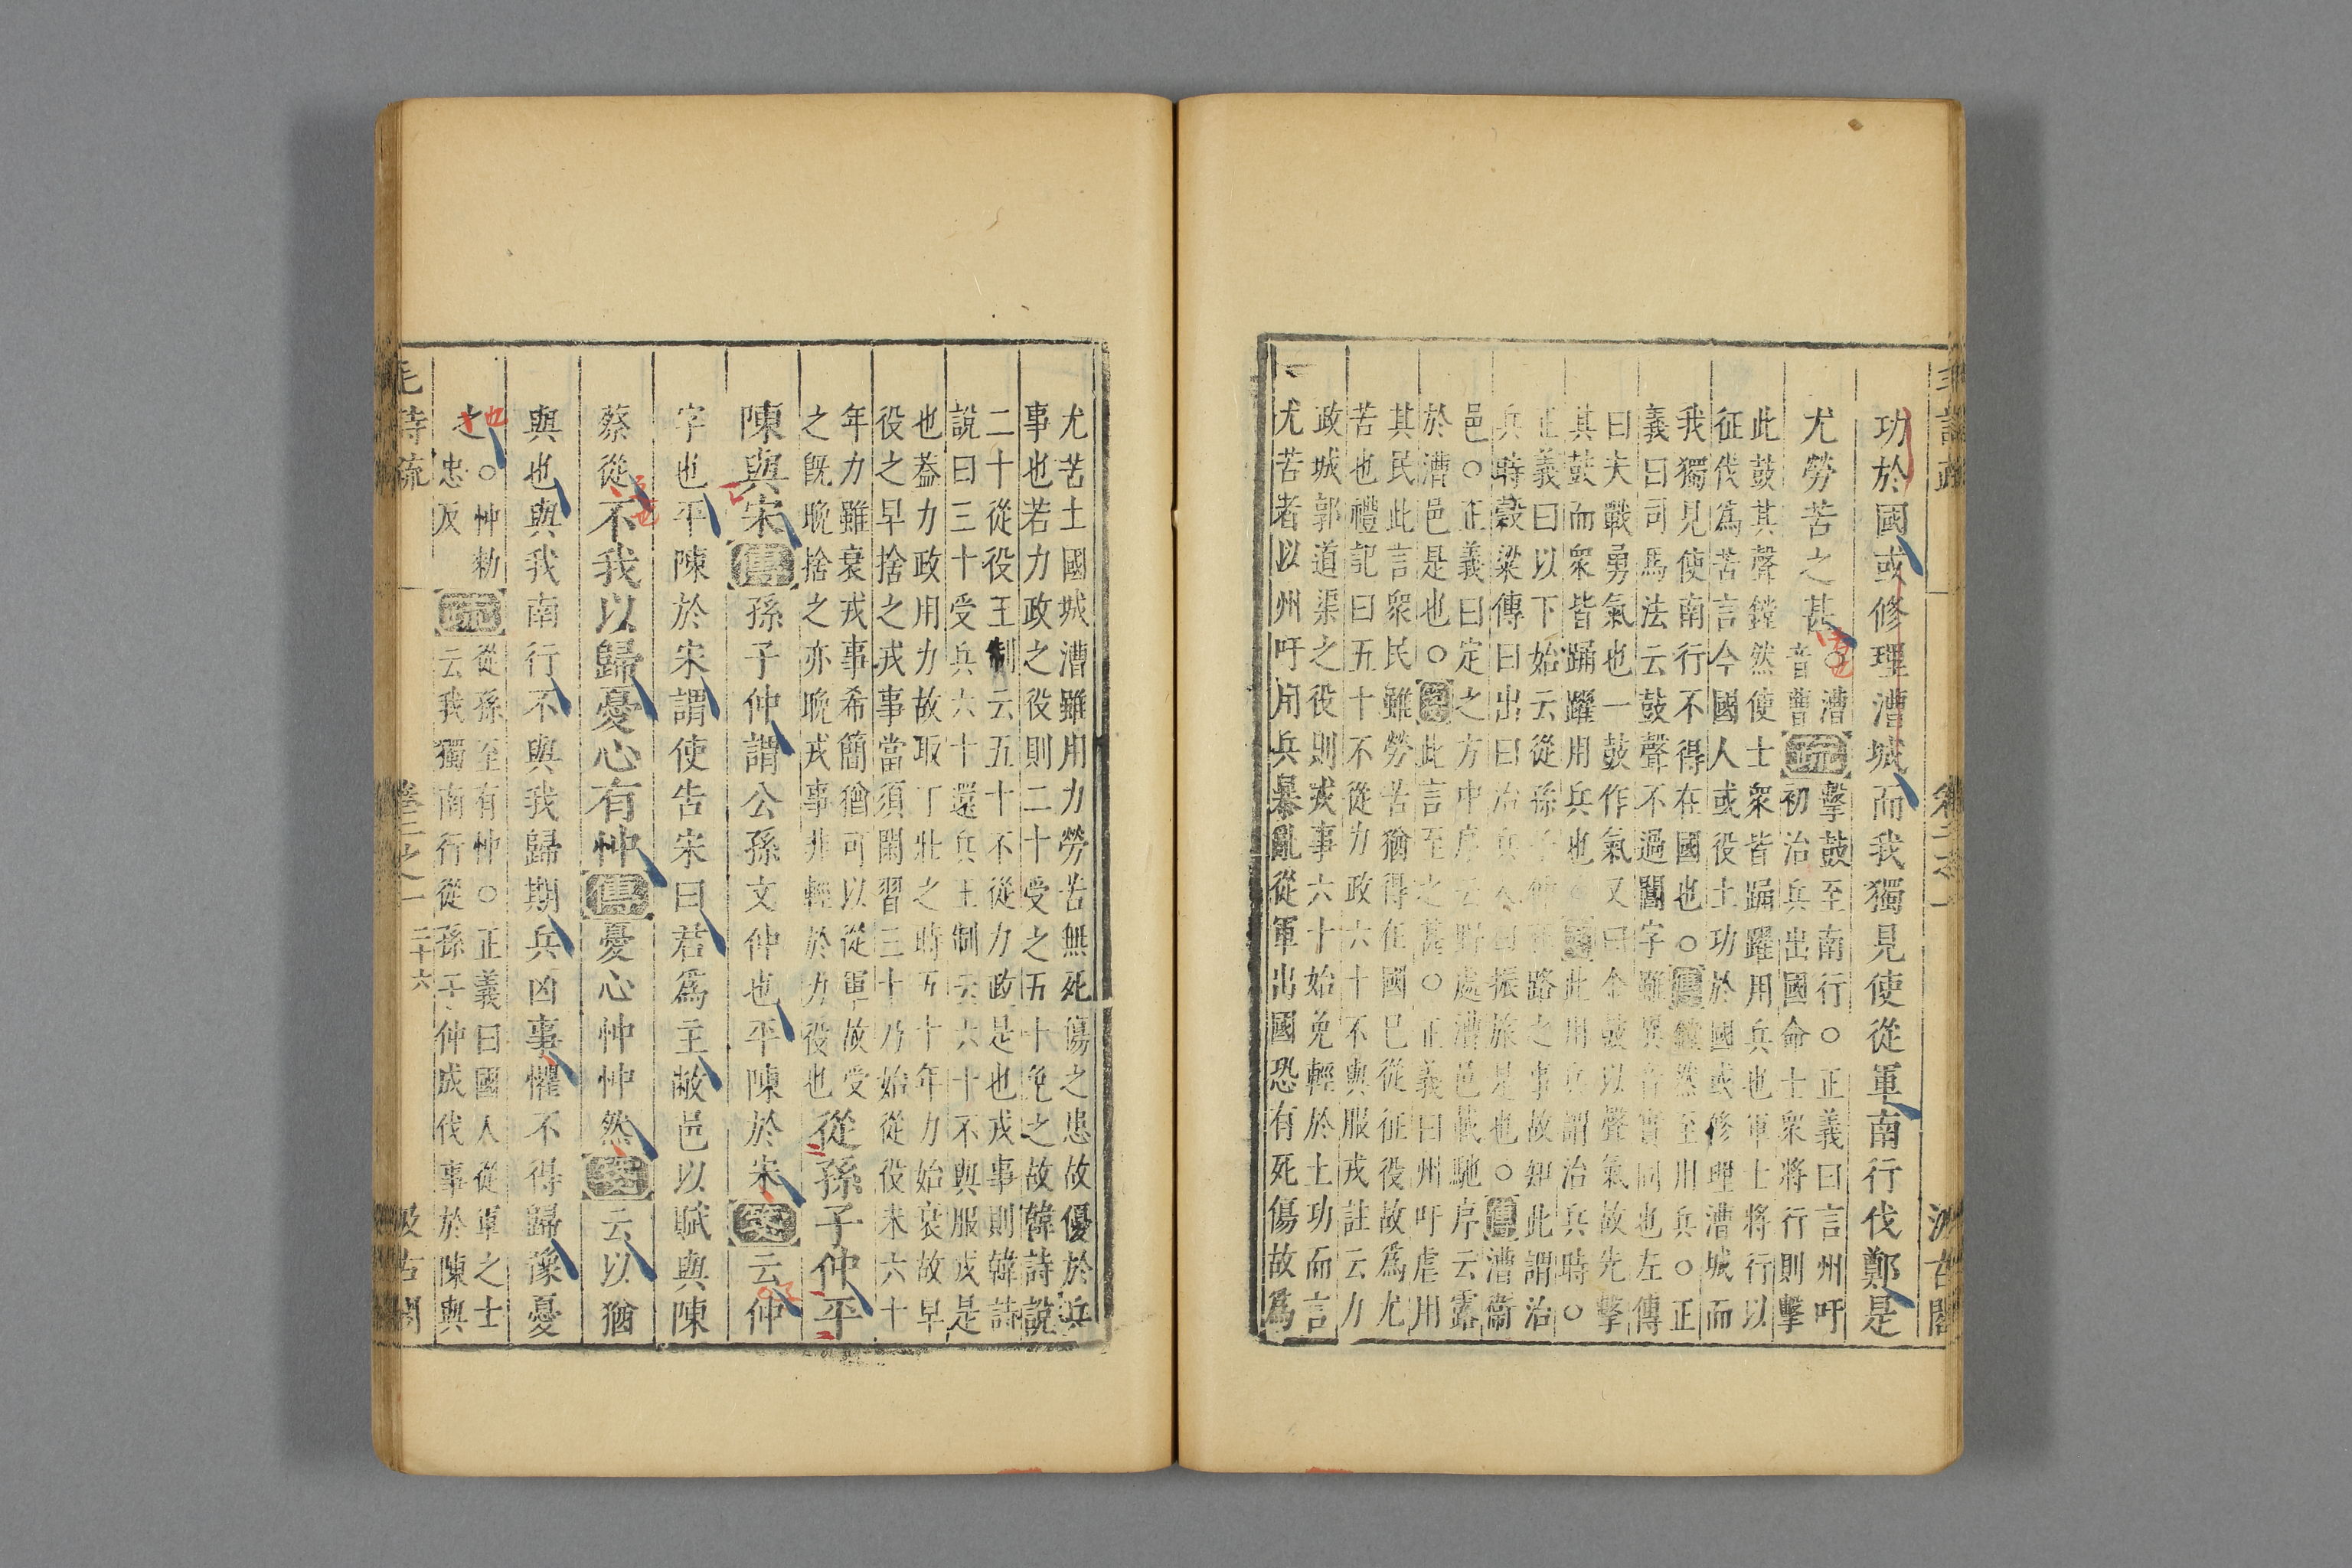 功於國或修理漕城而我獨見使從軍南行伐鄭是
尤勞苦之甚○漕
音曹
疏
擊鼓至南行○正義曰言州吁
初治兵出國命士衆將行則擊
此鼓其聲鏜然使士衆皆踊躍用兵也軍士將行以
征伐爲苦言今國人或役土功於國或修理漕城而
我獨見使南行不得在國也○傳鏜然至用兵○正
義曰司馬法云鼓聲不過閶字雖異音實同也左傳
曰夫戰勇氣也一鼓作氣又曰金鼓以聲氣故先擊
其鼓而衆皆踊躍用兵也 此用兵謂治兵時○
正義曰以下始云從孫子仲 路之事故知此謂治
兵時穀梁傳曰出曰治兵入曰振旅是也○傳漕衞
邑○正義曰定之方中序云野處漕邑載馳序云露
於漕邑是也○箋此言至之甚○正義曰州吁虐用
其民此言衆民雖勞苦猶得在國已從征役故爲尤
苦也禮記曰五十不從力政六十不與服戎註云力
政城郭道渠之役則戎事六十始免輕於土功而言
尤苦者以州吁用兵暴亂從軍出國恐有死傷故爲
尤苦土國城漕雖用力勞苦無死傷之患故優於兵
事也若力政之役則二十受之五十免之故韓詩說
二十從役王制云五十不從力政是也戎事則韓詩
說曰三十受兵六十還兵王制云六十不與服戎是
也蓋力政用力故取丁壯之時五十年力始衰故早
役之早捨之戎事當須閑習三十乃始從役未六十
年力雖衰戎事希簡猶可以從軍故受
之旣晚捨之亦晚戎事非輕於力役也
從孫子仲平
陳與宋傳孫子仲謂公孫文仲也平陳於宋箋云仲
字也平陳於宋謂使告宋曰君爲主敝邑以賦與陳
蔡從不我以歸憂心有忡傳憂心忡忡然箋云以猶
與也與我南行不與我歸期兵凶事懼不得歸豫憂
之○忡勑
忠反
疏
從孫至有忡○正義曰國人從軍之士
云我獨南行從孫子仲成伐事於陳與
毛詩疏 卷二之一 二十六 汲古閣